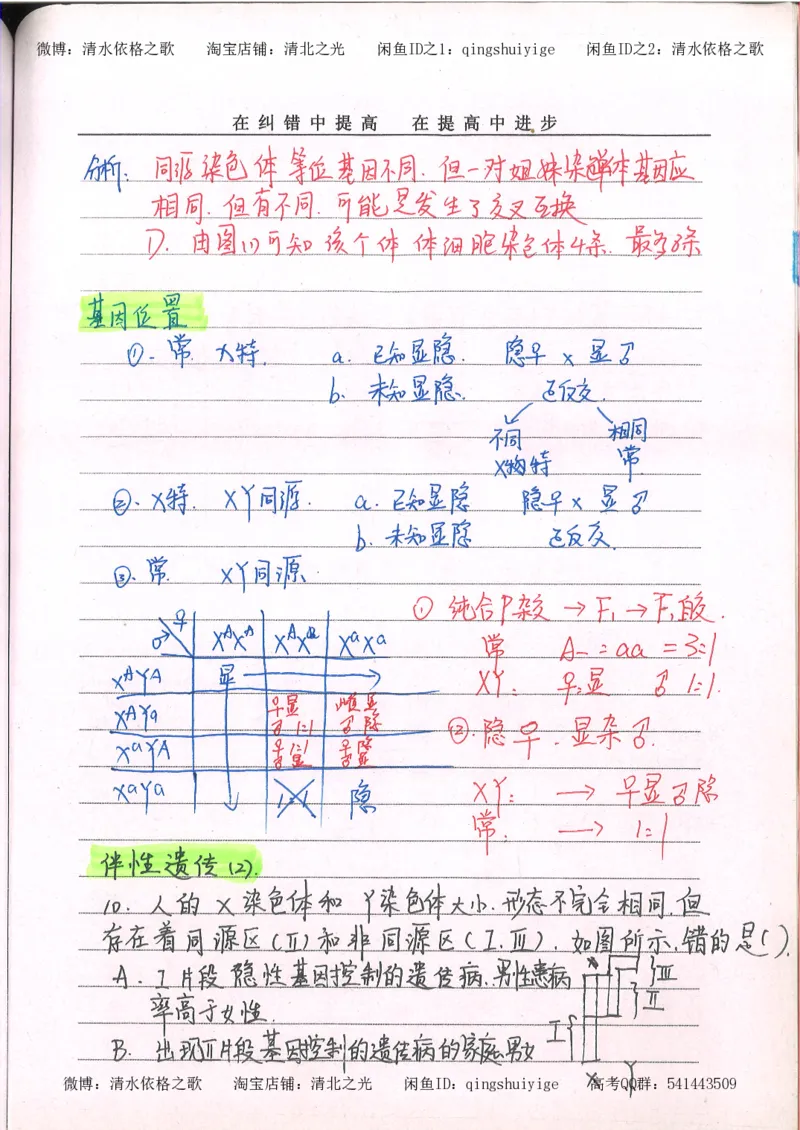 微博：清水依格之歌 淘宝店铺：清北之光 闲鱼ID之1：qingshuiyige 闲鱼ID之2：清水依格之歌
在纠错中提高 在提高中进步
分析：同源染色体等位基因不同.但一对姐妹染色单体基因应
相同.但有不同.可能是发生了交叉互换
D. 由图(1)可知该个体体细胞染色体4条.最多8条
基因位置
①.常. X特. a. 已知显隐. 隐♀ x 显♂
b. 未知显隐. 正反交.
不同 相同
X特 常
②. X特. XY同源. a. 已知显隐 隐♀ x 显♂
b. 未知显隐 正反交.
③.常. XY同源.
① 纯合P杂交 → F₁ → F₁自交.
♂ ♀ XᴬXᴬ XᴬXᵃ XᵃXᵃ
常 A_ : aa = 3:1
XᴬYᴬ 显
XY: ♀:显 ♂ 1:1.
XᴬYᵃ ♀显 ♂ 1:1 雌显 ♂隐
XᵃYᴬ ♀1:1 ♂显 ♀隐
② 隐♀.显杂♂.
XᵃYᵃ 1:1 隐
XY: → ♀显♂隐
常: → 1:1
伴性遗传(2).
10. 人的X染色体和Y染色体大小.形态不完全相同.但
存在着同源区(Ⅱ)和非同源区(Ⅰ.Ⅲ).如图所示,错的是( ).
A. Ⅰ片段隐性基因控制的遗传病.男性患病
率高于女性.
Ⅲ
Ⅱ
Ⅰ
B. 出现Ⅱ片段基因控制的遗传病的家庭男女
X Y
微博：清水依格之歌 淘宝店铺：清北之光 闲鱼ID：qingshuiyige 高考QQ群：541443509